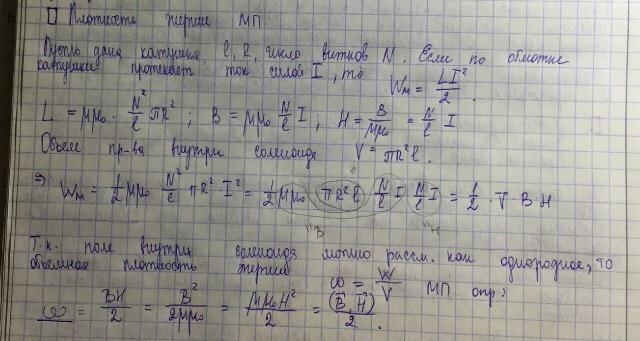 Плотность энергии МП.
Пусть дана катушка, l, R, число витков N. Если по обмотке
катушки протекает ток силой I, то Wм = LI²/2.
L = μμ₀ · N²/l πR²; B = μμ₀ N/l I; H = B/μμ₀ = N/l I
Объем пр-ва внутри соленоида V = πR²l.
⇒ Wм = 1/2 μμ₀ N²/l πR² I² = 1/2 μμ₀ πR²l N/l I N/l I = 1/2 · V · B · H
"B "H
Т.к. поле внутри соленоида можно рассм. как однородное, то
объемная плотность энергии ω = W/V МП опр:
ω = BH/2 = B²/2μμ₀ = μμ₀H²/2 = (B, H)/2.